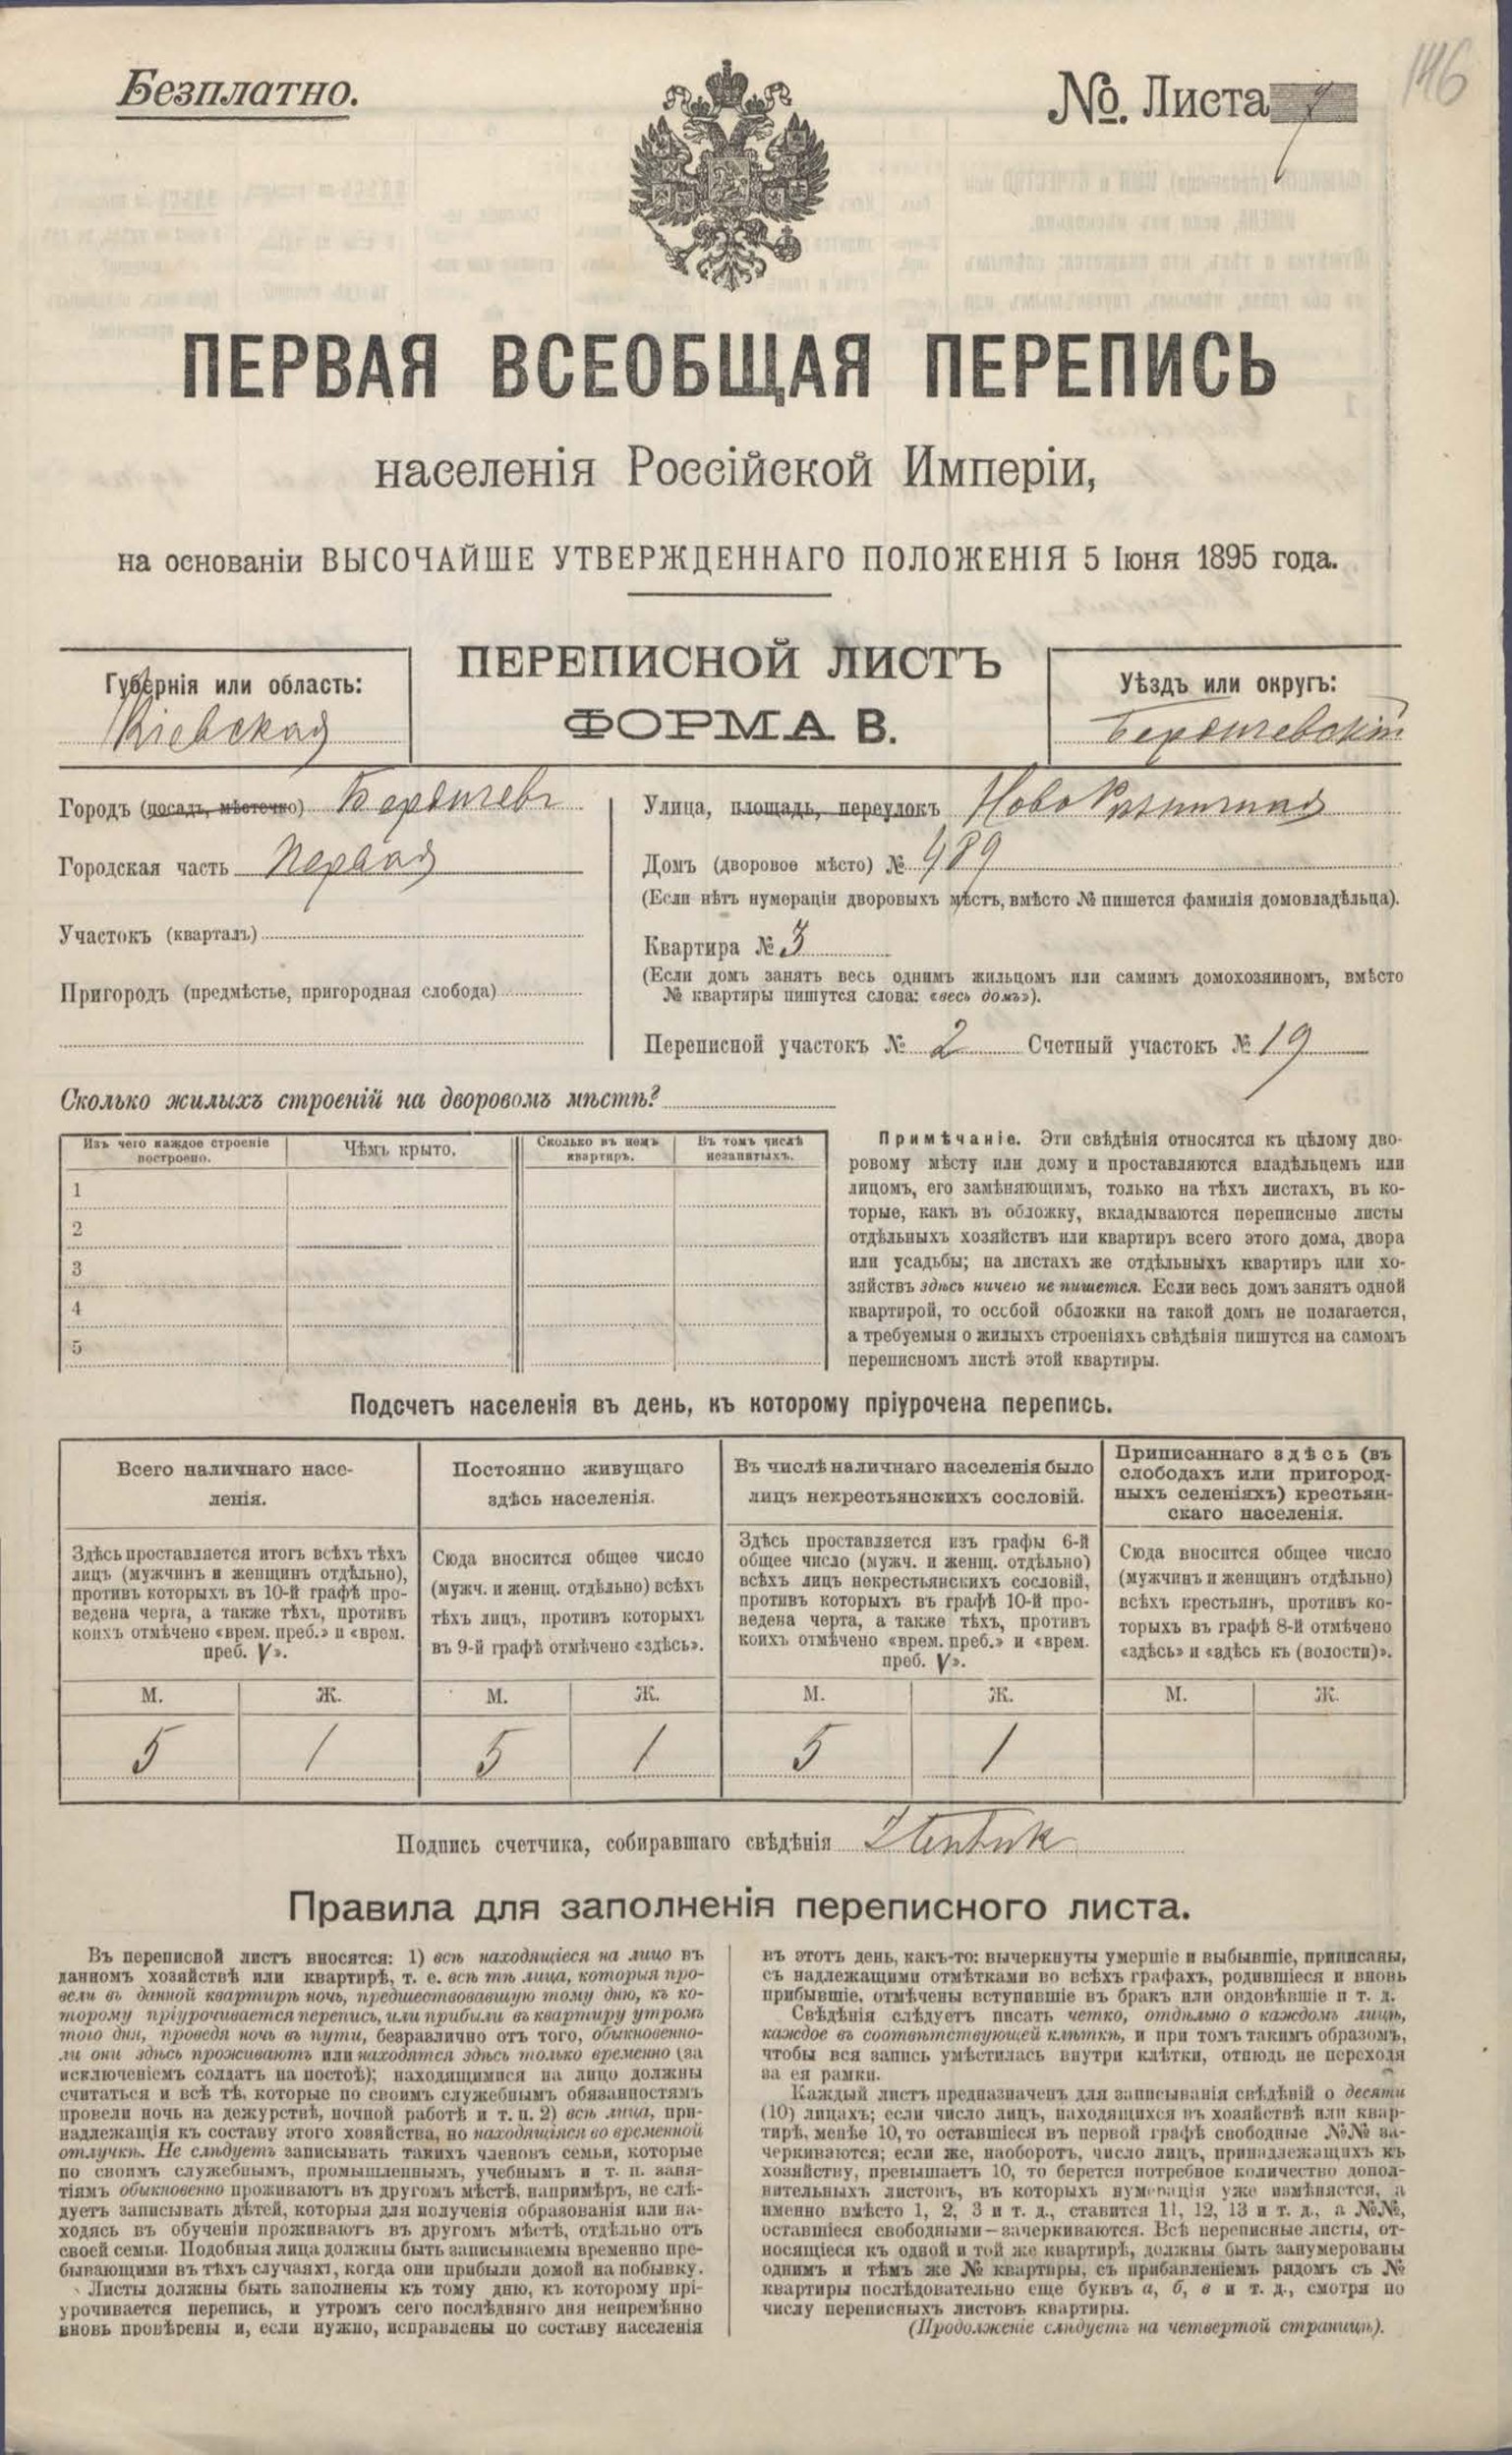 146
Безплатно.
№. Листа 7
ПЕРВАЯ ВСЕОБЩАЯ ПЕРЕПИСЬ
населенія Россійской Имперіи,
на основаніи ВЫСОЧАЙШЕ УТВЕРЖДЕННАГО ПОЛОЖЕНІЯ 5 Іюня 1895 года.
ПЕРЕПИСНОЙ ЛИСТЪ
ФОРМА В.
Губернія или область:
Кіевская
Уѣздъ или округъ:
Бердичевскій
Городъ (посадъ, мѣстечко) Бердичевъ
Городская часть Первая
Участокъ (кварталъ)
Пригородъ (предмѣстье, пригородная слобода)
Улица, площадь, переулокъ
Домъ (дворовое мѣсто) № 489
(Если нѣтъ нумераціи дворовыхъ мѣстъ, вмѣсто № пишется фамилія домовладѣльца).
Квартира № 3
(Если домъ занятъ весь однимъ жильцомъ или самимъ домохозяиномъ, вмѣсто
№ квартиры пишутся слова: «весь домъ»).
Переписной участокъ № 2 Счетный участокъ № 19
Сколько жилыхъ строеній на дворовомъ мѣстѣ?
Изъ чего каждое строеніе построено.
Чѣмъ крыто.
Сколько въ немъ квартиръ.
Въ томъ числѣ незанятыхъ.
1
2
3
4
5
Примѣчаніе. Эти свѣдѣнія относятся къ цѣлому дво-
ровому мѣсту или дому и проставляются владѣльцемъ или
лицомъ, его замѣняющимъ, только на тѣхъ листахъ, въ ко-
торые, какъ въ обложку, вкладываются переписные листы
отдѣльныхъ хозяйствъ или квартиръ всего этого дома, двора
или усадьбы; на листахъ же отдѣльныхъ квартиръ или хо-
зяйствъ здѣсь ничего не пишется. Если весь домъ занятъ одной
квартирой, то особой обложки на такой домъ не полагается,
а требуемыя о жилыхъ строеніяхъ свѣдѣнія пишутся на самомъ
переписномъ листѣ этой квартиры.
Подсчетъ населенія въ день, къ которому пріурочена перепись.
Всего наличнаго насе-
ленія.
Здѣсь проставляется итогъ всѣхъ тѣхъ
лицъ (мужчинъ и женщинъ отдѣльно),
противъ которыхъ въ 10-й графѣ про-
ведена черта, а также тѣхъ, противъ
коихъ отмѣчено «врем. преб.» и «врем.
преб. V».
М. Ж.
5 1
Постоянно живущаго
здѣсь населенія.
Сюда вносится общее число
(мужч. и женщ. отдѣльно) всѣхъ
тѣхъ лицъ, противъ которыхъ
въ 9-й графѣ отмѣчено «здѣсь».
М. Ж.
5 1
Въ числѣ наличнаго населенія было
лицъ некрестьянскихъ сословій.
Здѣсь проставляется изъ графы 6-й
общее число (мужч. и женщ. отдѣльно)
всѣхъ лицъ некрестьянскихъ сословій,
противъ которыхъ въ графѣ 10-й про-
ведена черта, а также тѣхъ, противъ
коихъ отмѣчено «врем. преб.» и «врем.
преб. V».
М. Ж.
5 1
Приписаннаго здѣсь (въ
слободахъ или пригород-
ныхъ селеніяхъ) крестьян-
скаго населенія.
Сюда вносится общее число
(мужчинъ и женщинъ отдѣльно)
всѣхъ крестьянъ, противъ ко-
торыхъ въ графѣ 8-й отмѣчено
«здѣсь» и «здѣсь къ (волости)».
М. Ж.
Подпись счетчика, собиравшаго свѣдѣнія
Правила для заполненія переписного листа.
Въ переписной листъ вносятся: 1) всѣ находящіеся на лицо въ
данномъ хозяйствѣ или квартирѣ, т. е. всѣ тѣ лица, которыя про-
вели въ данной квартирѣ ночь, предшествовавшую тому дню, къ ко-
торому пріурочивается перепись, или прибыли въ квартиру утромъ
того дня, проведя ночь въ пути, безразлично отъ того, обыкновенно-
ли они здѣсь проживаютъ или находятся здѣсь только временно (за
исключеніемъ солдатъ на постоѣ); находящимися на лицо должны
считаться и всѣ тѣ, которые по своимъ служебнымъ обязанностямъ
провели ночь на дежурствѣ, ночной работѣ и т. п. 2) всѣ лица, при-
надлежащія къ составу этого хозяйства, но находящіяся во временной
отлучкѣ. Не слѣдуетъ записывать такихъ членовъ семьи, которые
по своимъ служебнымъ, промышленнымъ, учебнымъ и т. п. заня-
тіямъ обыкновенно проживаютъ въ другомъ мѣстѣ, напримѣръ, не слѣ-
дуетъ записывать дѣтей, которыя для полученія образованія или на-
ходясь въ обученіи проживаютъ въ другомъ мѣстѣ, отдѣльно отъ
своей семьи. Подобныя лица должны быть записываемы временно пре-
бывающими въ тѣхъ случаяхъ, когда они прибыли домой на побывку.
Листы должны быть заполнены къ тому дню, къ которому прі-
урочивается перепись, и утромъ сего послѣдняго дня непремѣнно
вновь провѣрены и, если нужно, исправлены по составу населенія
въ этотъ день, какъ-то: вычеркнуты умершіе и выбывшіе, приписаны,
съ надлежащими отмѣтками во всѣхъ графахъ, родившіеся и вновь
прибывшіе, отмѣчены вступившіе въ бракъ или овдовѣвшіе и т. д.
Свѣдѣнія слѣдуетъ писать четко, отдѣльно о каждомъ лицѣ,
каждое въ соотвѣтствующей клѣткѣ, и при томъ такимъ образомъ,
чтобы вся запись умѣстилась внутри клѣтки, отнюдь не переходя
за ея рамки.
Каждый листъ предназначенъ для записыванія свѣдѣній о десяти
(10) лицахъ; если число лицъ, находящихся въ хозяйствѣ или квар-
тирѣ, менѣе 10, то оставшіеся въ первой графѣ свободные №№ за-
черкиваются; если же, наоборотъ, число лицъ, принадлежащихъ къ
хозяйству, превышаетъ 10, то берется потребное количество допол-
нительныхъ листовъ, въ которыхъ нумерація уже измѣняется, а
именно вмѣсто 1, 2, 3 и т. д., ставится 11, 12, 13 и т. д., а №№,
оставшіеся свободными—зачеркиваются. Всѣ переписные листы, от-
носящіеся къ одной и той же квартирѣ, должны быть занумерованы
однимъ и тѣмъ же № квартиры, съ прибавленіемъ рядомъ съ №
квартиры послѣдовательно еще буквъ а, б, в и т. д., смотря по
числу переписныхъ листовъ квартиры.
(Продолженіе слѣдуетъ на четвертой страницѣ).